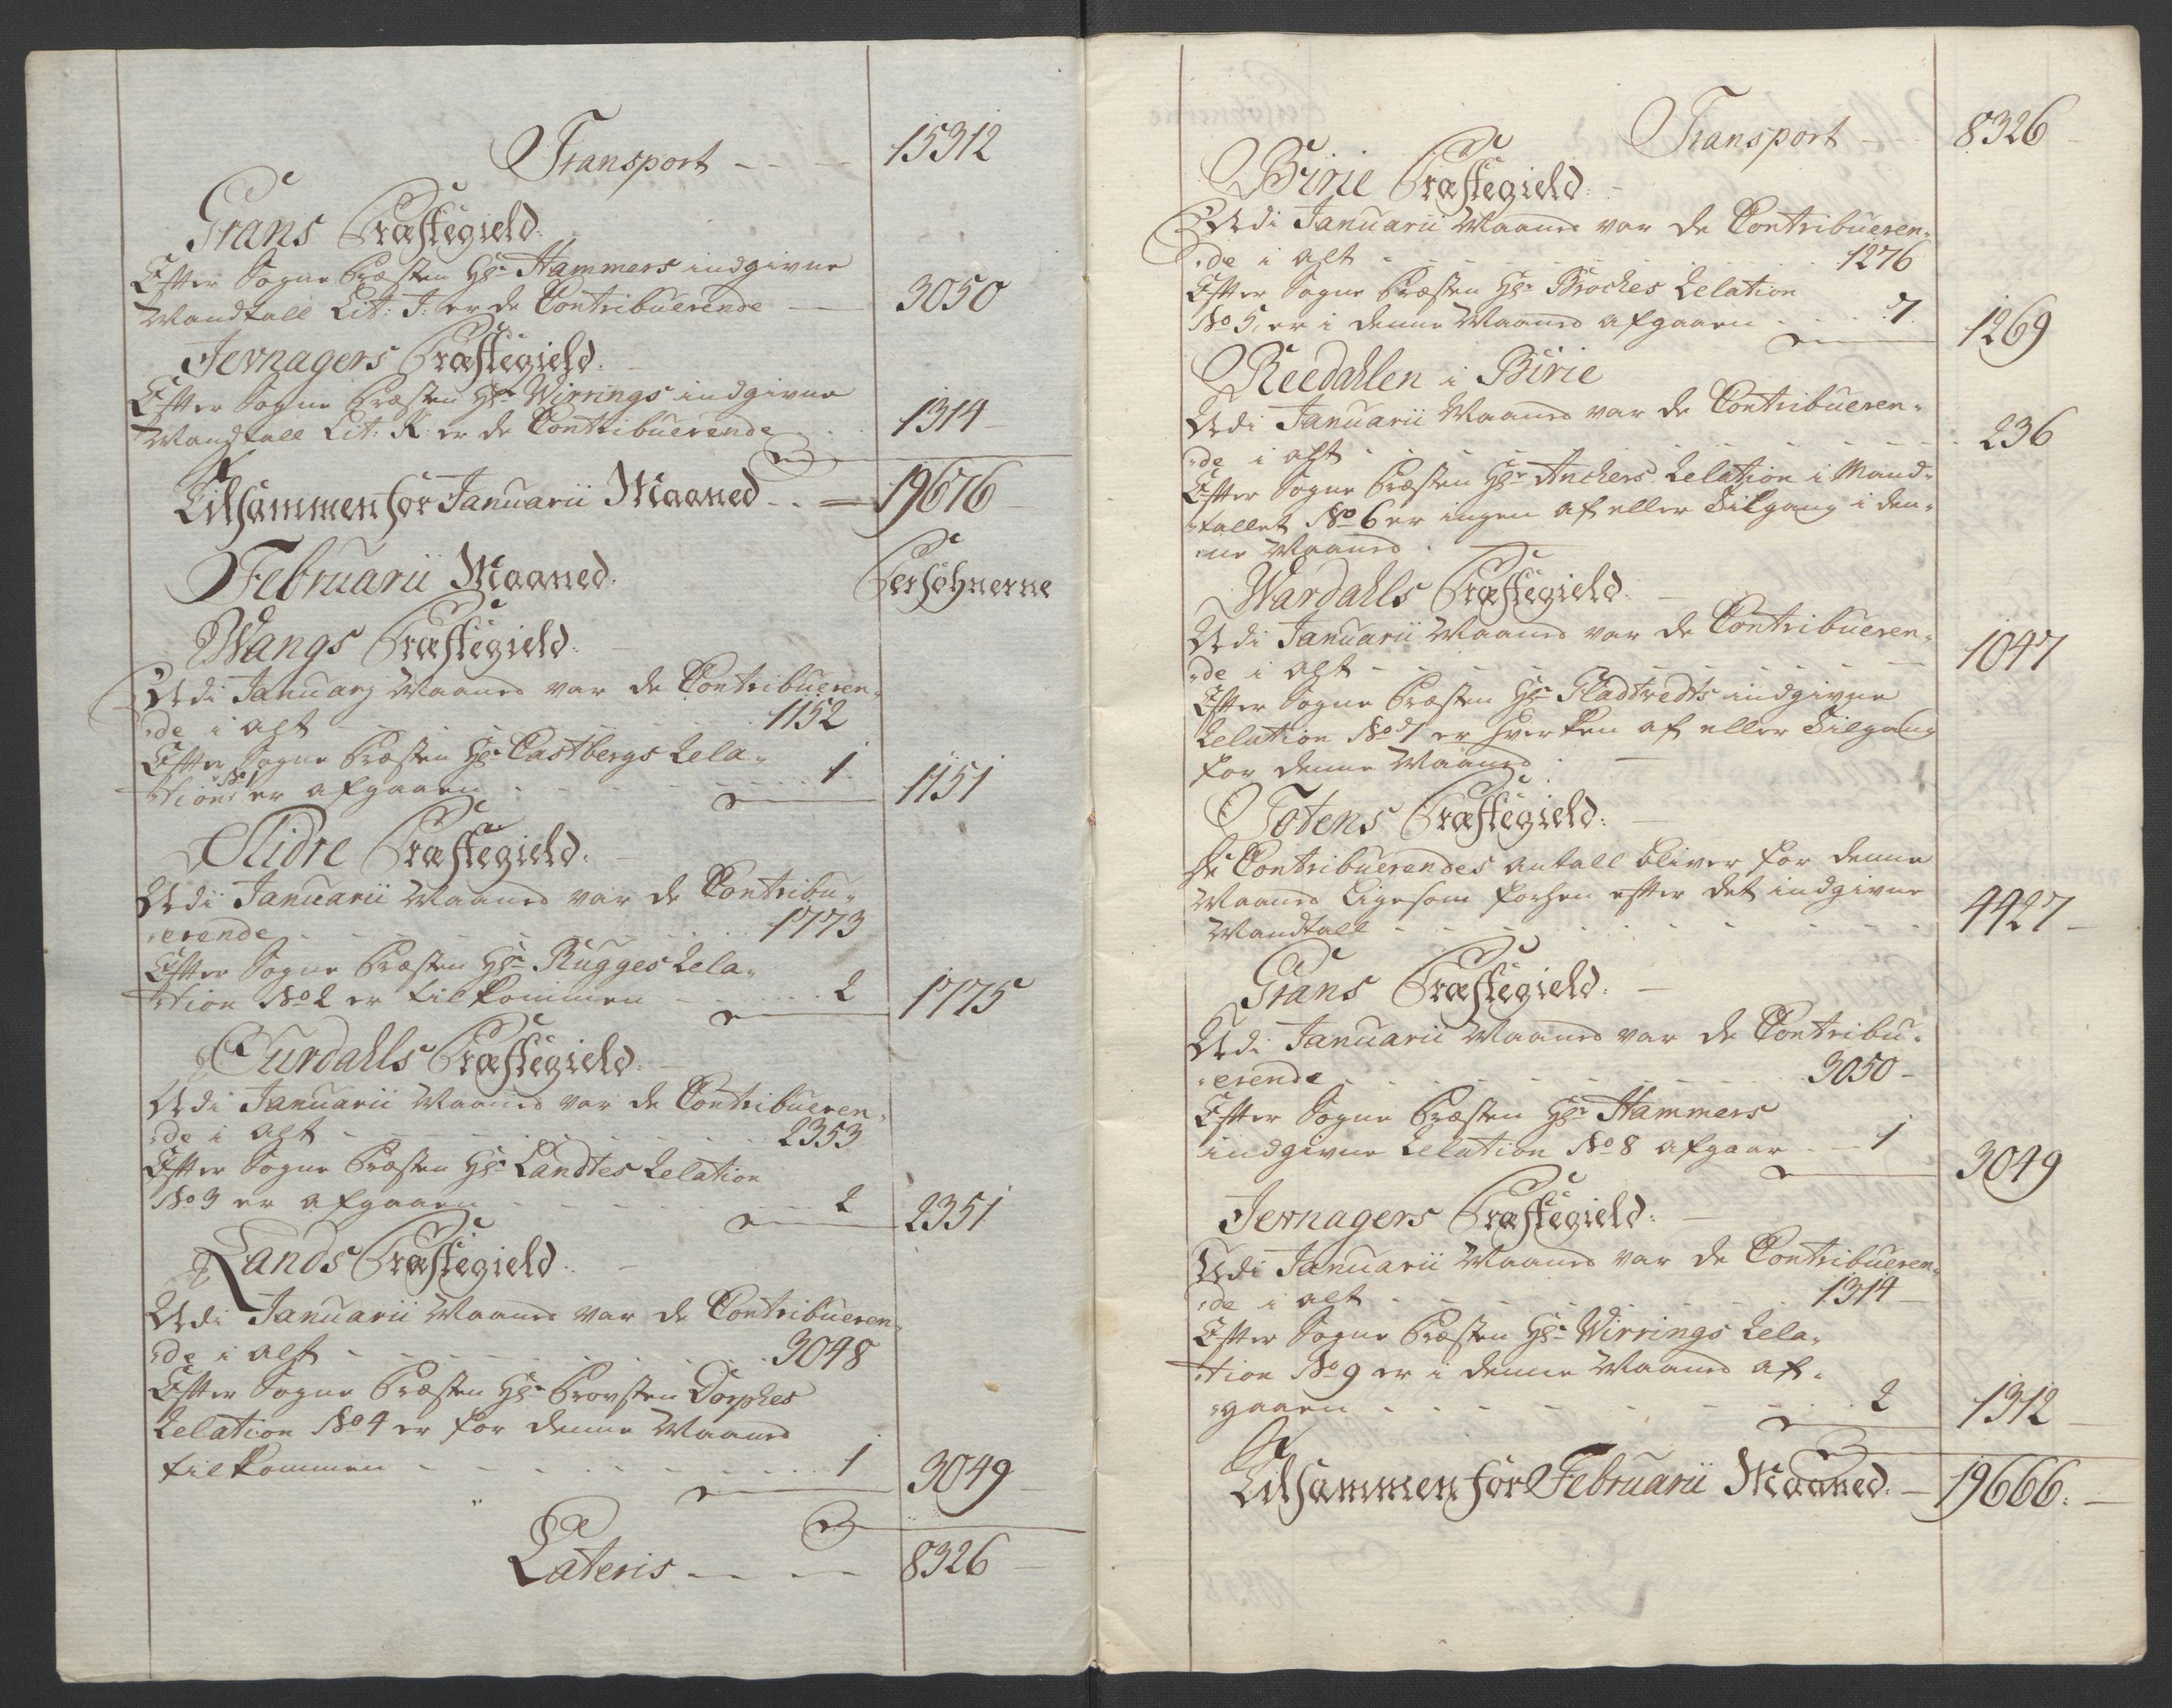 Transport - - - 15312
Grans Præstegield.
Efter Sogne Præsten Hr. Hammers indgivne
Mandtall Lit: I: er de Contribuerende — 3050
Jevnagers Præstegield.
Efter Sogne Præsten Hr. Wirrings indgivne
Mandtall Lit: K: er de Contribuerende . . 1314
Tilsammen for Januarii Maaned . . = 19676
Februarii Maaned. Persohnerne
Wangs Præstegield.
Udi Januarj Maaned var de Contribueren-
de i alt - - - 1152
Efter Sogne Præsten Hr. Castbergs Rela-
tion No 1 er afgaaen - - - 1. 1151
Slidre Præstegield.
Udi Januarii Maaned var de Contribu-
erende - - - 1773
Efter Sogne Præsten Hr. Rugges Rela-
tion No 2 er tilkommen - - - 2 1775
Ourdahls Præstegield.
Udi Januarii Maaned var de Contribueren-
de i alt - - - 2353
Efter Sogne Præsten Hr. Landtes Relation
No 3 er afgaaen - - - 2 2351
Lands Præstegield.
Udi Januarii Maaned var de Contribueren-
de i alt - - - 3048
Efter Sogne Præsten Hr. Provsten Dorphes
Relation No 4 er for denne Maaned
tilkommen - - - 1 3049
Lateris - - - 8326
Transport - - 8326
Birie Præstegield.
Udi Januarii Maaned var de Contribueren-
de i alt - - - 1276
Efter Sogne Præsten Hr. Broches Relation
No 5, er i denne Maaned afgaaen - - - 7. 1269
Reedahlen i Birie
Udi Januarii Maaned var de Contribueren-
de i alt - - - 236
Efter Sogne Præsten Hr. Anchers Relation i Mand-
tallet No 6 er ingen af eller Tilgang i den-
ne Maaned.
Wardahls Præstegield.
Udi Januarii Maaned var de Contribueren-
de i alt - - - 1047
Efter Sogne Præsten Hr. Gladtvedts indgivne
Relation No 7 er hverken af eller Tilgang
for denne Maaned.
Totens Præstegield.
De Contribuerendes antall bliver for denne
Maaned Ligesom forhen efter det indgivne
Mandtall - - - 4427
Grans Præstegield.
Udi Januarii Maaned var de Contribu-
erende - - - 3050
Efter Sogne Præsten Hr. Hammers
indgivne Relation No 8 afgaar - - 1 3049
Jevnagers Præstegield.
Udi Januarii Maaned var de Contribueren-
de i alt - - - 1314
Efter Sogne Præsten Hr. Wirrings Rela-
tion No 9 er i denne Maaned af-
gaaen - - - 2 1312
Tilsammen for Februarii Maaned. — 19666.